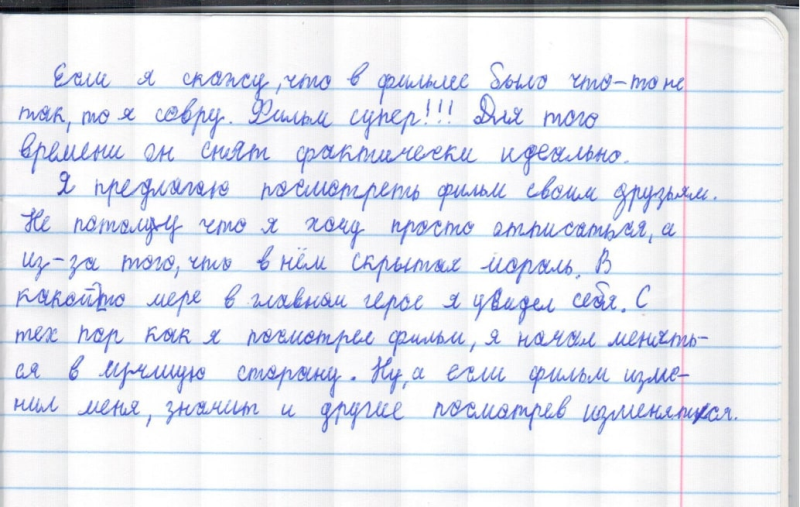 Если я скажу, что в фильме было что-то не
так, то я совру. Фильм супер!!! Для того
времени он снят фактически идеально.
Я предлагаю посмотреть фильм своим друзьям.
Не потому что я хочу просто отписаться, а
из-за того, что в нём скрытая мораль. В
какой-то мере в главном герое я увидел себя. С
тех пор как я посмотрел фильм, я начал менять-
ся в лучшую сторону. Ну, а если фильм изме-
нил меня, значит и другие посмотрев изменятся.